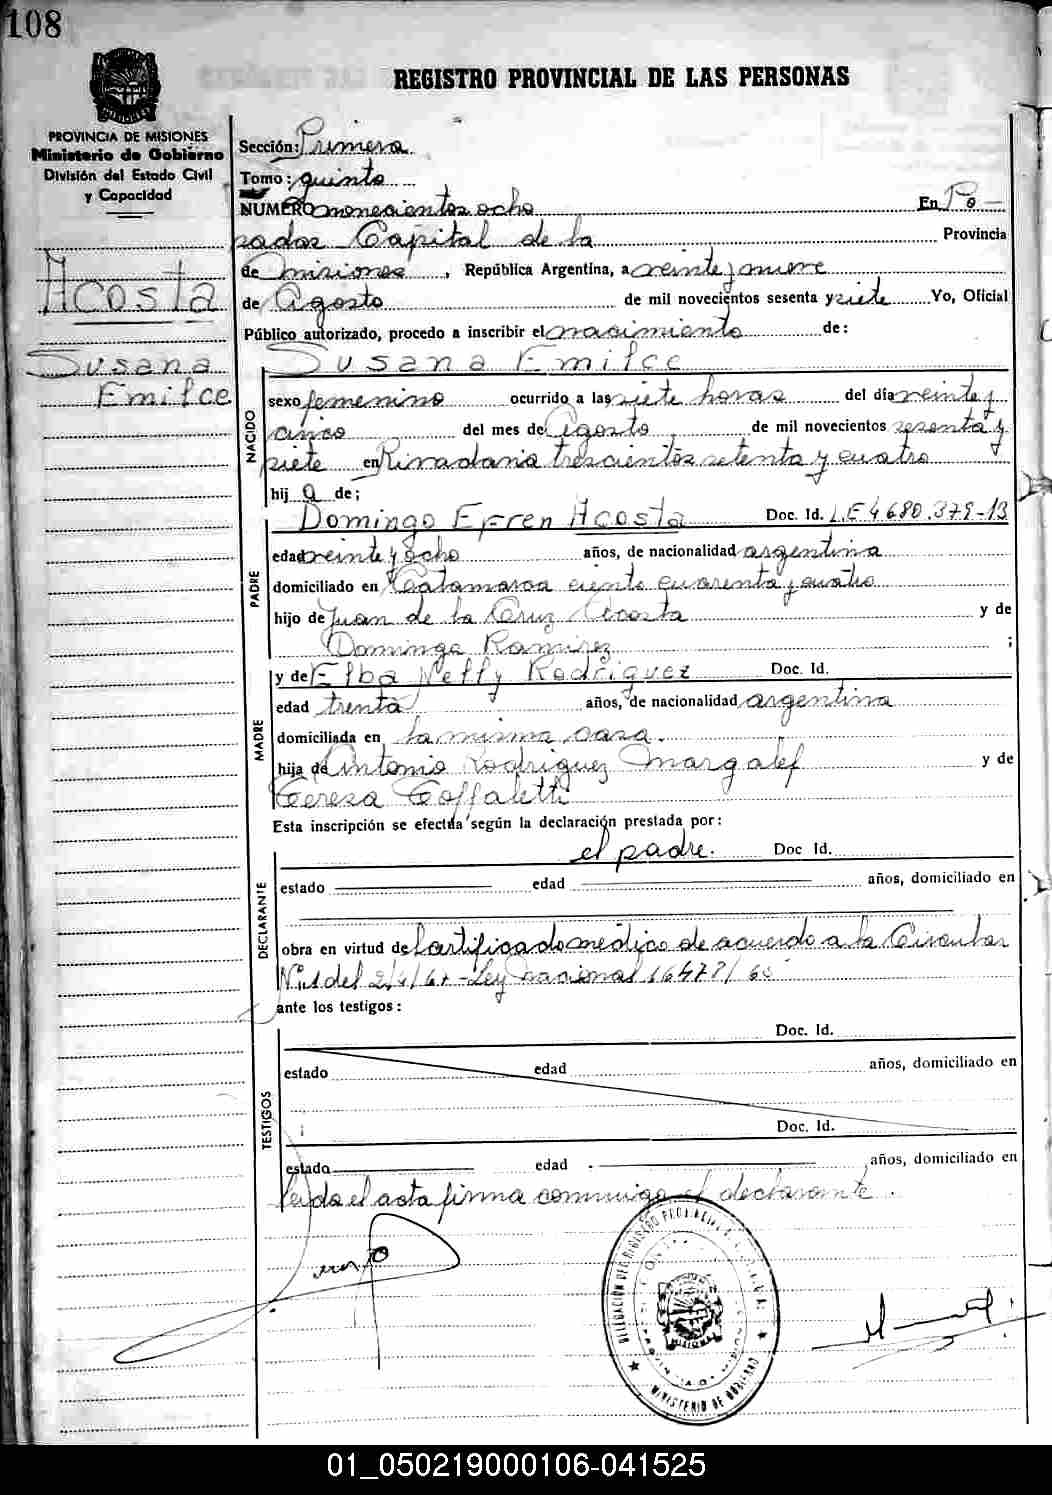 108
REGISTRO PROVINCIAL DE LAS PERSONAS
PROVINCIA DE MISIONES
Ministerio de Gobierno
División del Estado Civil
y Capacidad
Acosta
Susana
Emilce
Sección: Primera
Tomo: quinto
NUMERO novecientos ocho En Po-
sadas Capital de la Provincia
de Misiones, República Argentina, a veinte y nueve
de Agosto de mil novecientos sesenta y siete Yo, Oficial
Público autorizado, procedo a inscribir el nacimiento de:
Susana Emilce
NACIDO
sexo femenino ocurrido a las siete horas del día veinte y
cinco del mes de Agosto de mil novecientos sesenta y
siete en Rivadavia trescientos setenta y cuatro
hij a de;
PADRE
Domingo Efren Acosta Doc. Id. L.E 4.680.379-13
edad veinte y ocho años, de nacionalidad argentina
domiciliado en Catamarca ciento cuarenta y cuatro
hijo de Juan de la Cruz Acosta y de
Dominga Ramirez ;
y de Elba Nelly Rodriguez Doc. Id.
MADRE
edad trenta años, de nacionalidad argentina
domiciliada en la misma casa.
hija de Antonio Rodriguez Margalef y de
Teresa Toffaletti
Esta inscripción se efectúa según la declaración prestada por:
el padre. Doc Id.
DECLARANTE
estado edad años, domiciliado en
obra en virtud de Certificado médico de acuerdo a la Circular
del 2/4/67-Ley nacional 16478/
ante los testigos:
TESTIGOS
Doc. Id.
estado edad años, domiciliado en
Doc. Id.
estado edad años, domiciliado en
leída el acta firma conmigo el declarante.
DELEGACION DEL REGISTRO PROVINCIAL
MINISTERIO DE GOBIERNO
01_050219000106-041525